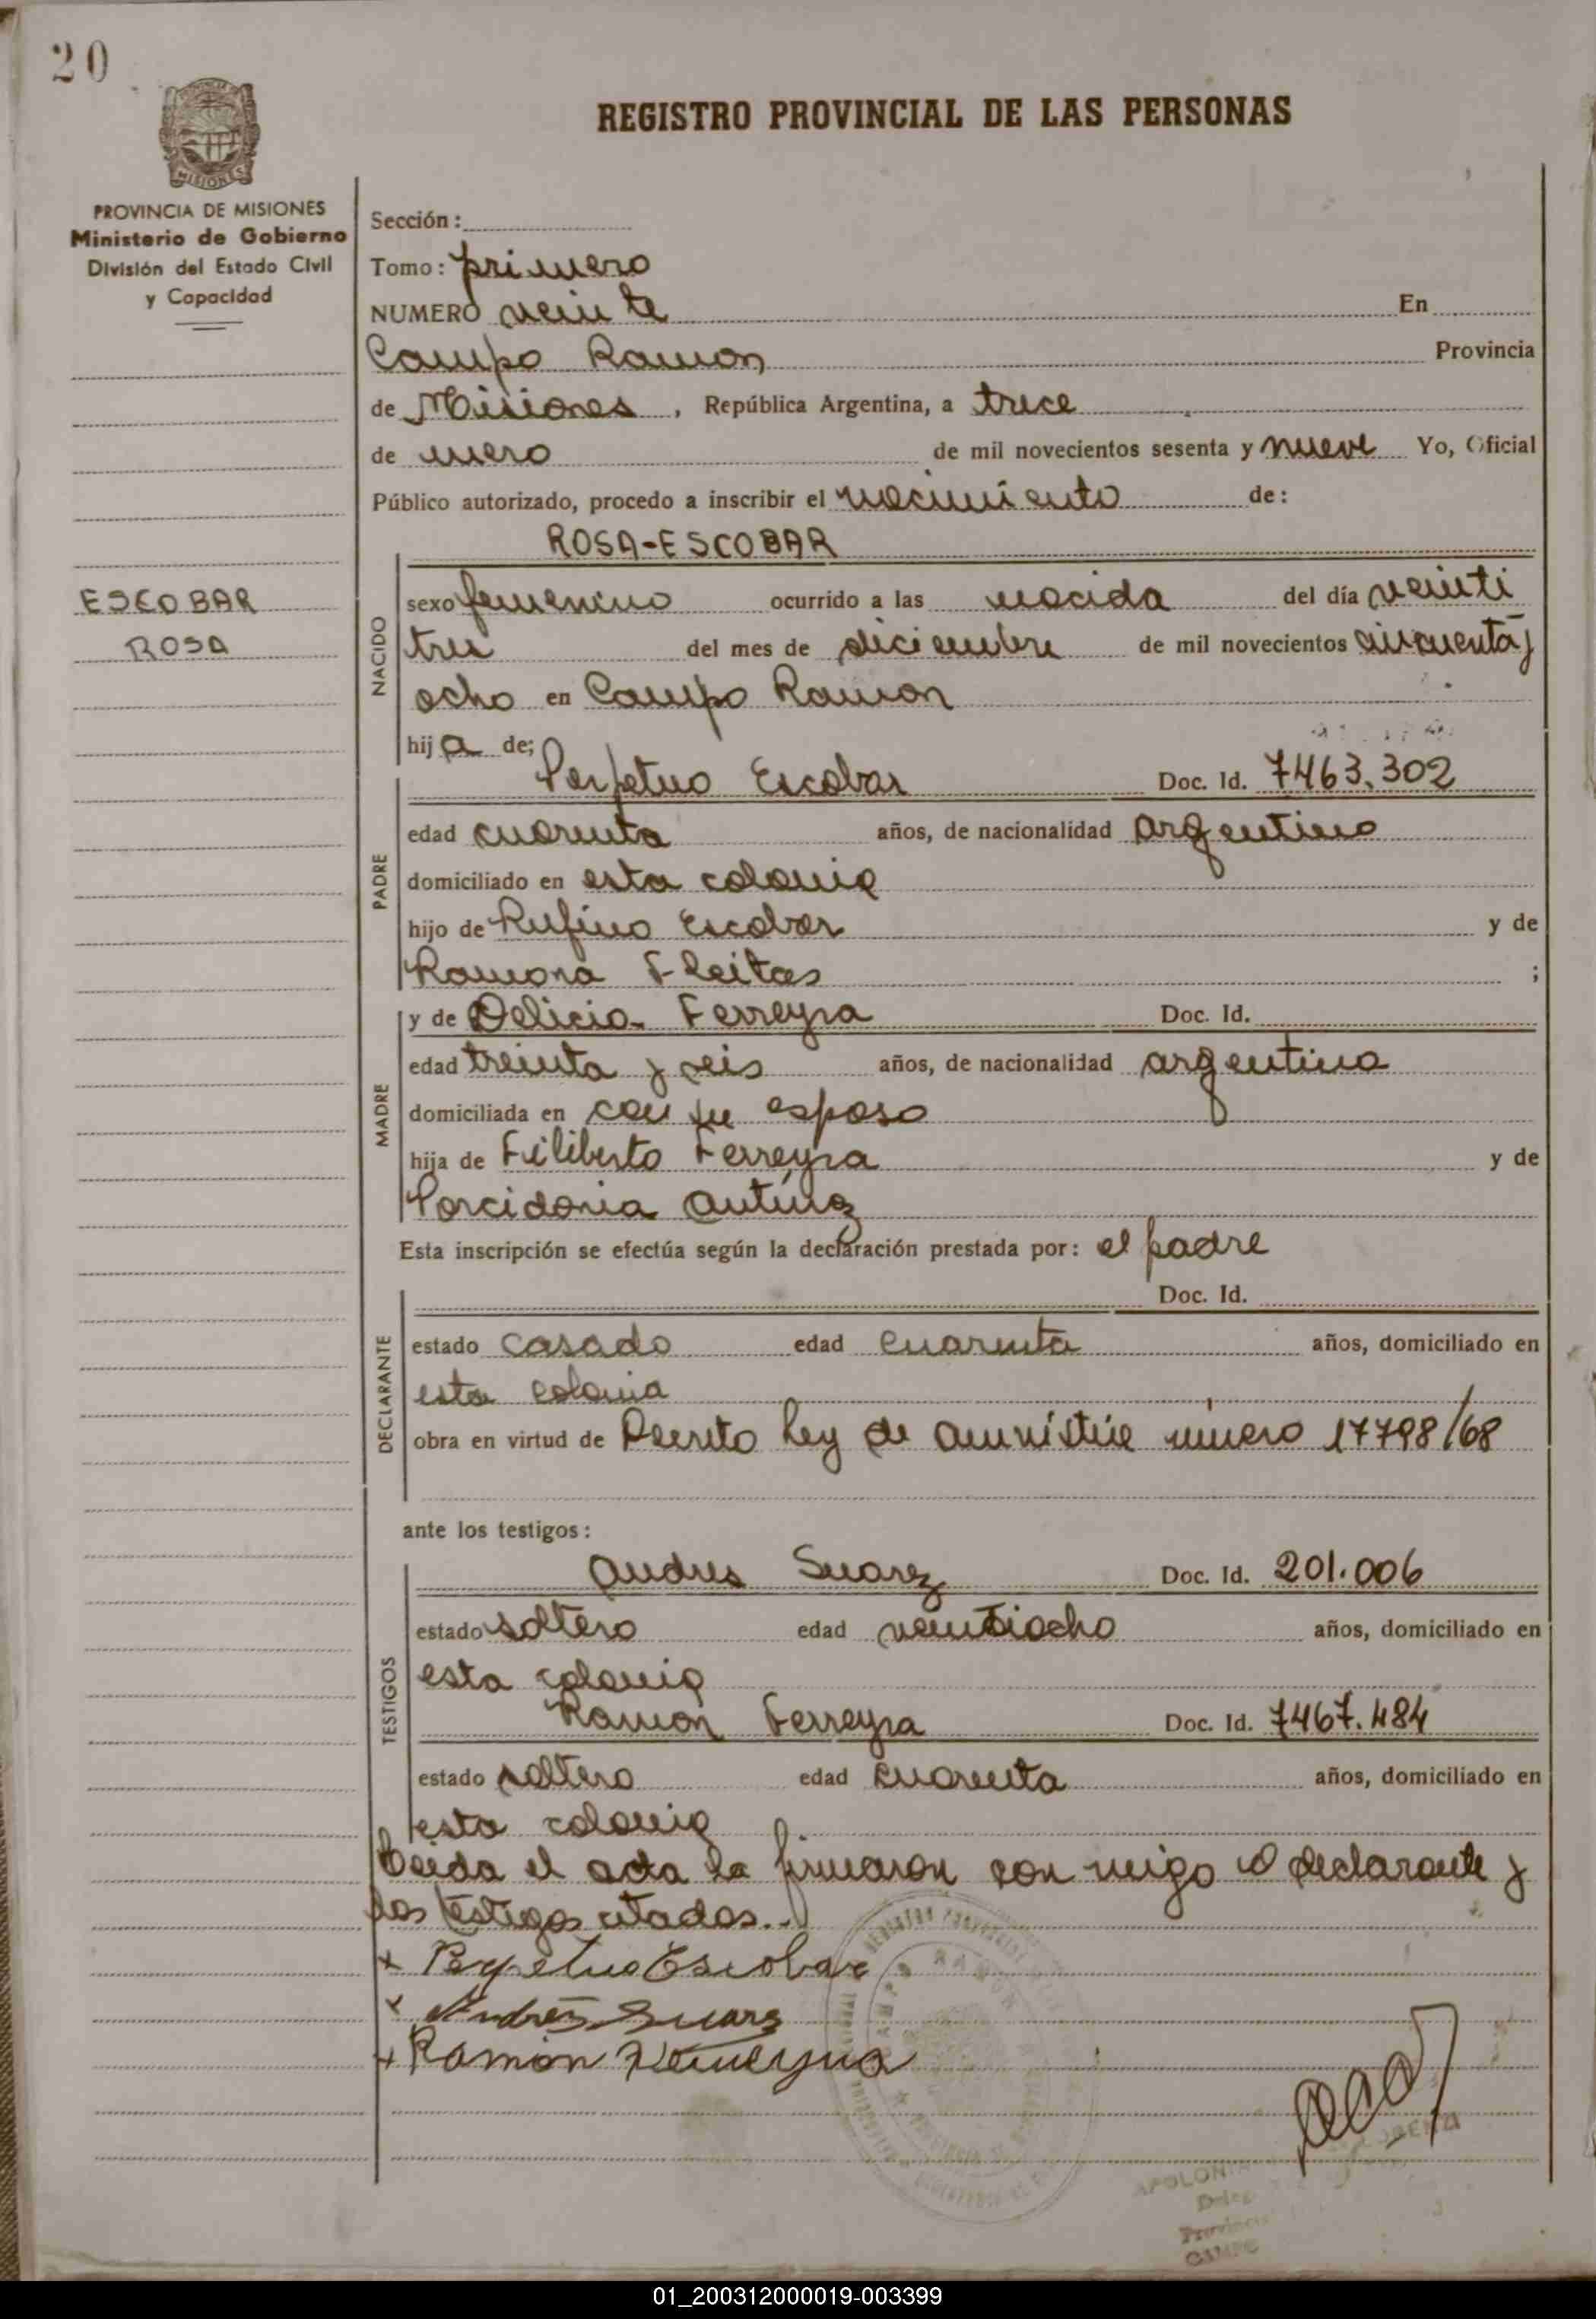 20
MISIONES
PROVINCIA DE MISIONES
Ministerio de Gobierno
División del Estado Civil
y Capacidad
REGISTRO PROVINCIAL DE LAS PERSONAS
Sección:
Tomo: primero
NUMERO veinte En
Campo Ramon Provincia
de Misiones, República Argentina, a trece
de enero de mil novecientos sesenta y nueve Yo, Oficial
Público autorizado, procedo a inscribir el nacimiento de:
ROSA-ESCOBAR
ESCOBAR
ROSA
NACIDO
sexo femenino ocurrido a las nacida del día veinti
tres del mes de diciembre de mil novecientos cincuenta y
ocho en Campo Ramon
hija de;
Perpetuo Escobar Doc. Id. 7463.302
PADRE
edad cuarenta años, de nacionalidad argentino
domiciliado en esta colonia
hijo de Rufino Escobar y de
Ramona Fleitas ;
y de Delicia Ferreyra Doc. Id.
MADRE
edad treinta y seis años, de nacionalidad argentina
domiciliada en con su esposo
hija de Filiberto Ferreyra y de
Porcidonia Antúnez
Esta inscripción se efectúa según la declaración prestada por: el padre
Doc. Id.
DECLARANTE
estado casado edad cuarenta años, domiciliado en
esta colonia
obra en virtud de Decreto Ley de amnistia numero 17798/68
ante los testigos:
Andres Suarez Doc. Id. 201.006
TESTIGOS
estado soltero edad veintiocho años, domiciliado en
esta colonia
Ramon Ferreyra Doc. Id. 7467.484
estado soltero edad cuarenta años, domiciliado en
esta colonia
Leida el acta la firmaron con migo el declarante y
los testigos citados..
x Perpetuo Escobar
x Andrés Suarez
x Ramon Ferreyra
APOLONI
Deleg
Provincial
CAMPO
01_200312000019-003399